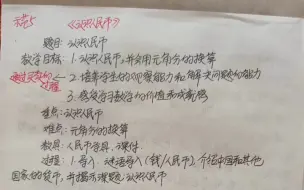 《认识人民币》
题目：认识人民币
教学目标：1.认识人民币，并会用元角分的换算
过程 2.培养学生的观察能力和解决问题的能力
3.感受学习数学的价值和成就感
重点：认识人民币
难点：元角分的换算
教具：人民币各具、课件
过程：1.导入 谜语导入（钱/人民币），介绍中国和其他
国家的货币，并揭示课题：认识人民币